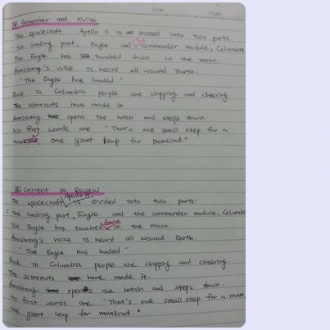 Remember and Write
The spacecraft Apollo 11 is divided into two parts
the landing part, Eagle and commander module, Columbia
The Eagle has touched down on the moon.
Armstrong's voice is heard all around Earth.
"The Eagle has landed."
Back in Columbia people are clapping and cheering
The astronauts have made it.
Armstrong opens the hatch and steps down.
his first words are "That's one small step for a
man one giant leap for mankind."
Correct as Reread
Apollo 11
The spacecraft is divided into two parts
the landing part, Eagle and the commander module, Columbia
down
The Eagle has touched on the moon
Armstrong's voice is heard all around Earth.
"The Eagle has landed."
Back in Columbia people are clapping and cheering
The astronauts have made it.
Armstrong opens the hatch and steps down.
his first words are "That's one small step for a man
one giant leap for mankind."